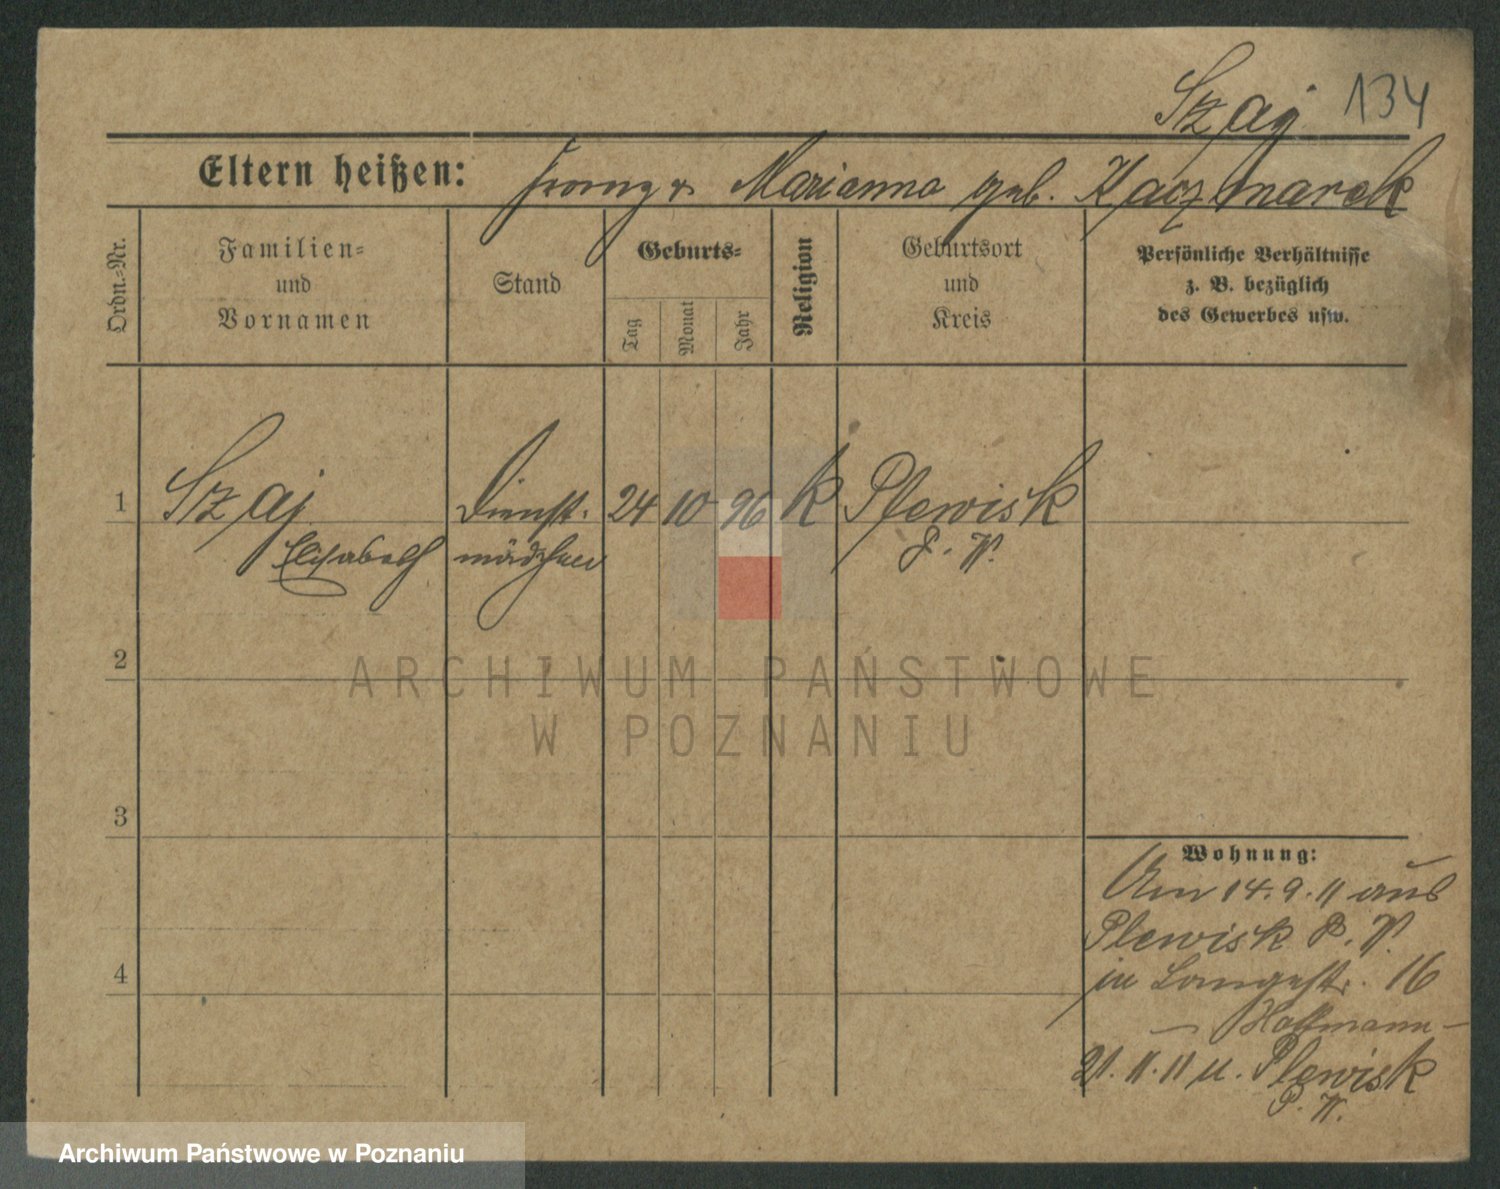 Szaj 134
Eltern heißen: Franz u. Marianna geb. Kaczmarek
Ordn.-Nr.
Familien-
und
Vornamen
Stand
Geburts-
Tag
Monat
Jahr
Religion
Geburtsort
und
Kreis
Persönliche Verhältnisse
z. B. bezüglich
des Gewerbes usw.
1 Szaj Dienst- 24 10 96 k Plewisk
Elisabeth mädchen P. W.
2
3
4
Wohnung:
Am 14.9.11 aus
Plewisk P. W.
in Langestr. 16
— Hoffmann —
21.11.11 n. Plewisk
P. W.
ARCHIWUM PAŃSTWOWE
W POZNANIU
Archiwum Państwowe w Poznaniu